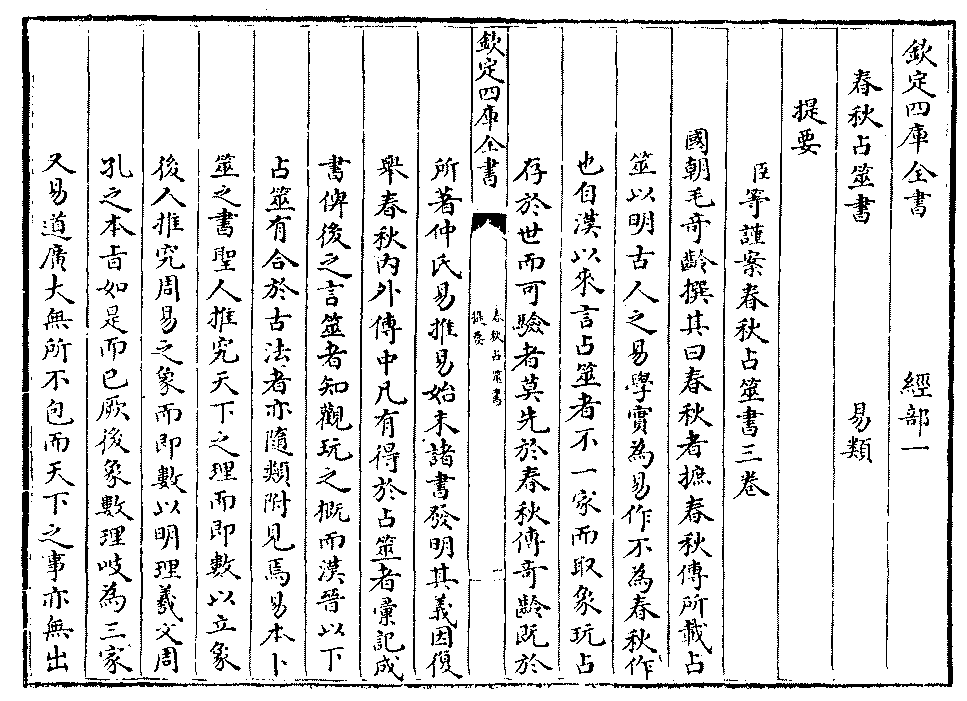 欽定四庫全書 經部一
春秋占筮書 易類
提要
臣等謹案春秋占筮書三卷
國朝毛奇齡撰其曰春秋者摭春秋傳所載占
筮以明古人之易學實為易作不為春秋作
也自漢以來言占筮者不一家而取象玩占
存於世而可驗者莫先於春秋傳奇齡既於
欽定四庫全書
春秋占筮書
提要
所著仲氏易推易始末諸書發明其義因復
舉春秋內外傳中凡有得於占筮者彙記成
書俾後之言筮者知觀玩之概而漢晉以下
占筮有合於古法者亦隨類附見焉易本卜
筮之書聖人推究天下之理而即數以立象
後人推究周易之象而即數以明理羲文周
孔之本旨如是而已厥後象數理岐為三家
又易道廣大無所不包而天下之事亦無出